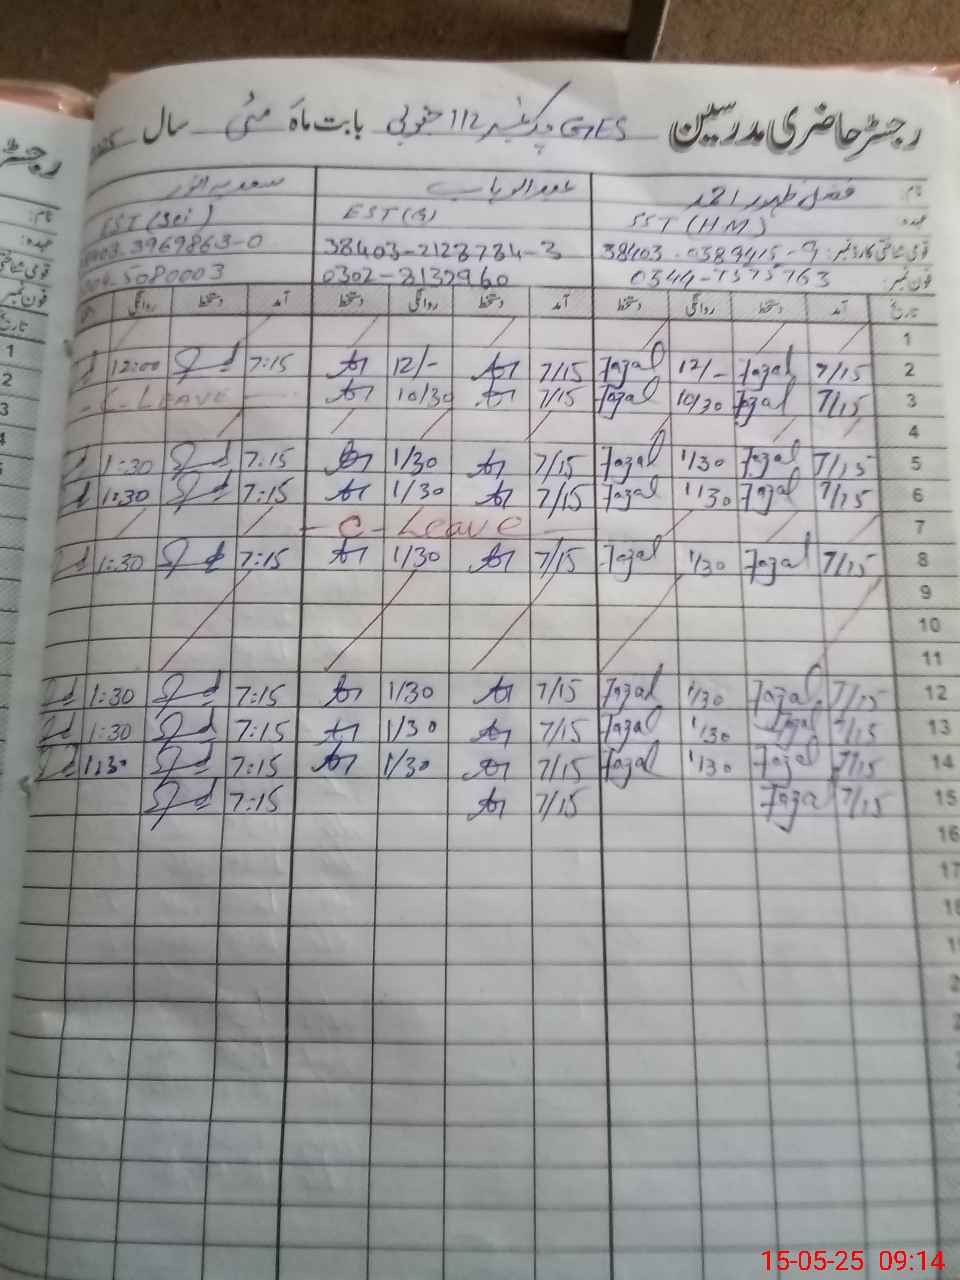 رجسٹر حاضری مدرسین GES چک نمبر 112 جنوبی بابت ماہ مئی سال
نام فضل ظہور احمد عبدالوہاب سعدیہ انور
عہدہ SST (HM) EST (G) EST (Sci)
قومی شناختی کارڈ نمبر: 38403-0389415-9 38403-2128784-3 3969863-0
فون نمبر: 0344-7575763 0302-8132960 5080003
تاریخ آمد دستخط روانگی دستخط آمد دستخط روانگی دستخط آمد دستخط روانگی
1
2 7/15 Fazal 12/- Fazal 7/15 12/- 7:15 12:00
3 7/15 Fazal 10/30 Fazal 7/15 10/30 - C - LEAVE -
4
5 7/15 Fazal 1/30 Fazal 7/15 1/30 7:15 1:30
6 7/15 Fazal 1/30 Fazal 7/15 1/30 7:15 1:30
7 - C - Leave -
8 7/15 Fazal 1/30 Fazal 7/15 1/30 7:15 1:30
9
10
11
12 7/15 Fazal 1/30 Fazal 7/15 1/30 7:15 1:30
13 7/15 Fazal 1/30 Fazal 7/15 1/30 7:15 1:30
14 7/15 Fazal 1/30 Fazal 7/15 1/30 7:15 1:30
15 7/15 Fazal 7/15 7:15
16
17
15-05-25 09:14